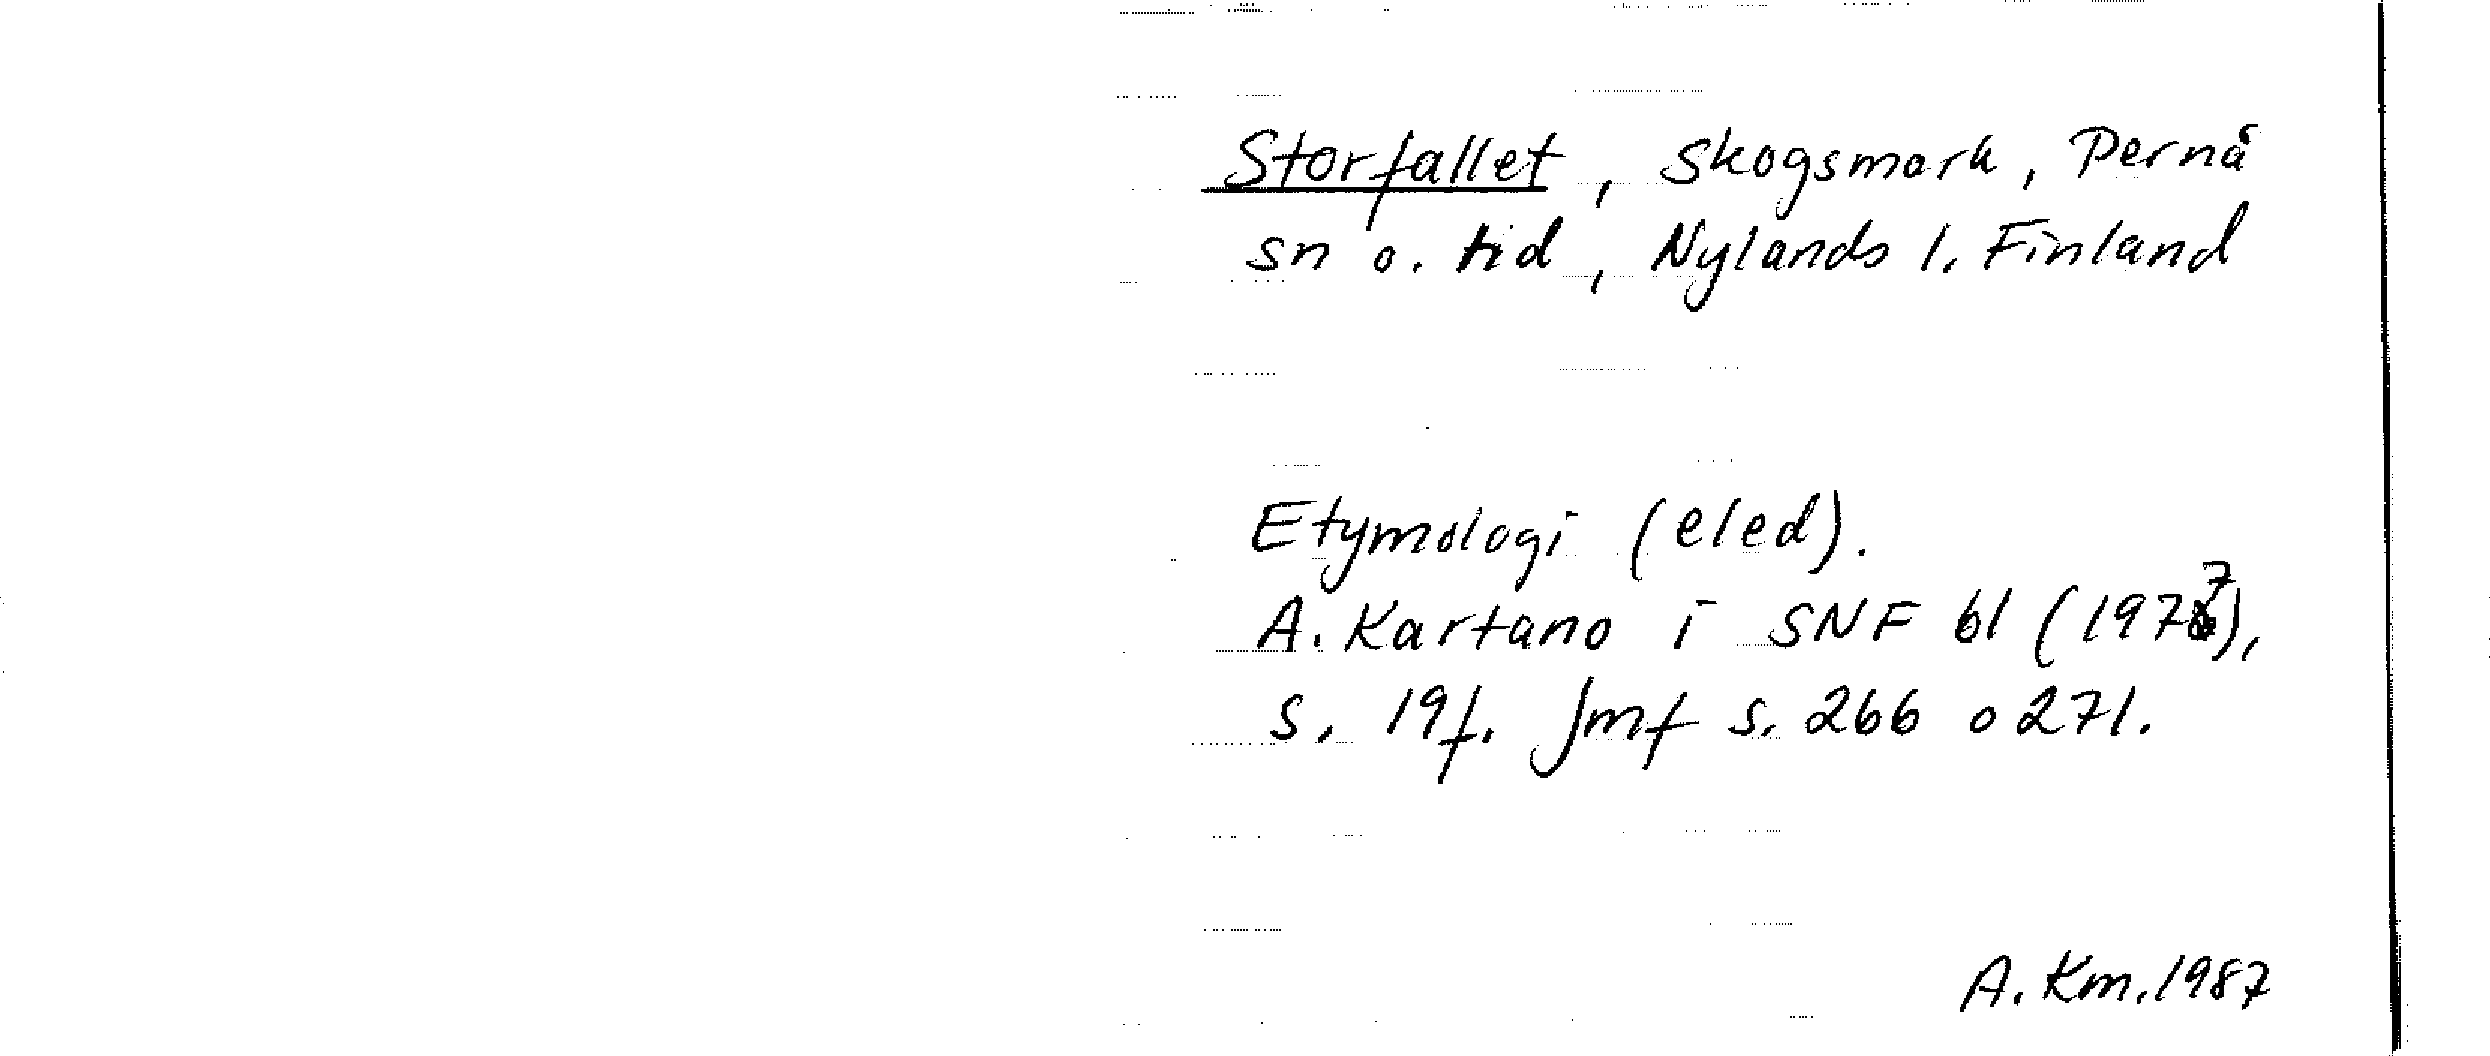 Storfallet, skogsmark, Pernå
sn o. tid, Nylands l. Finland
Etymologi (eled).
A. Kartano i SNF 61 (1977),
s. 19f. Jmf s. 266 o 271.
A. Km. 1987